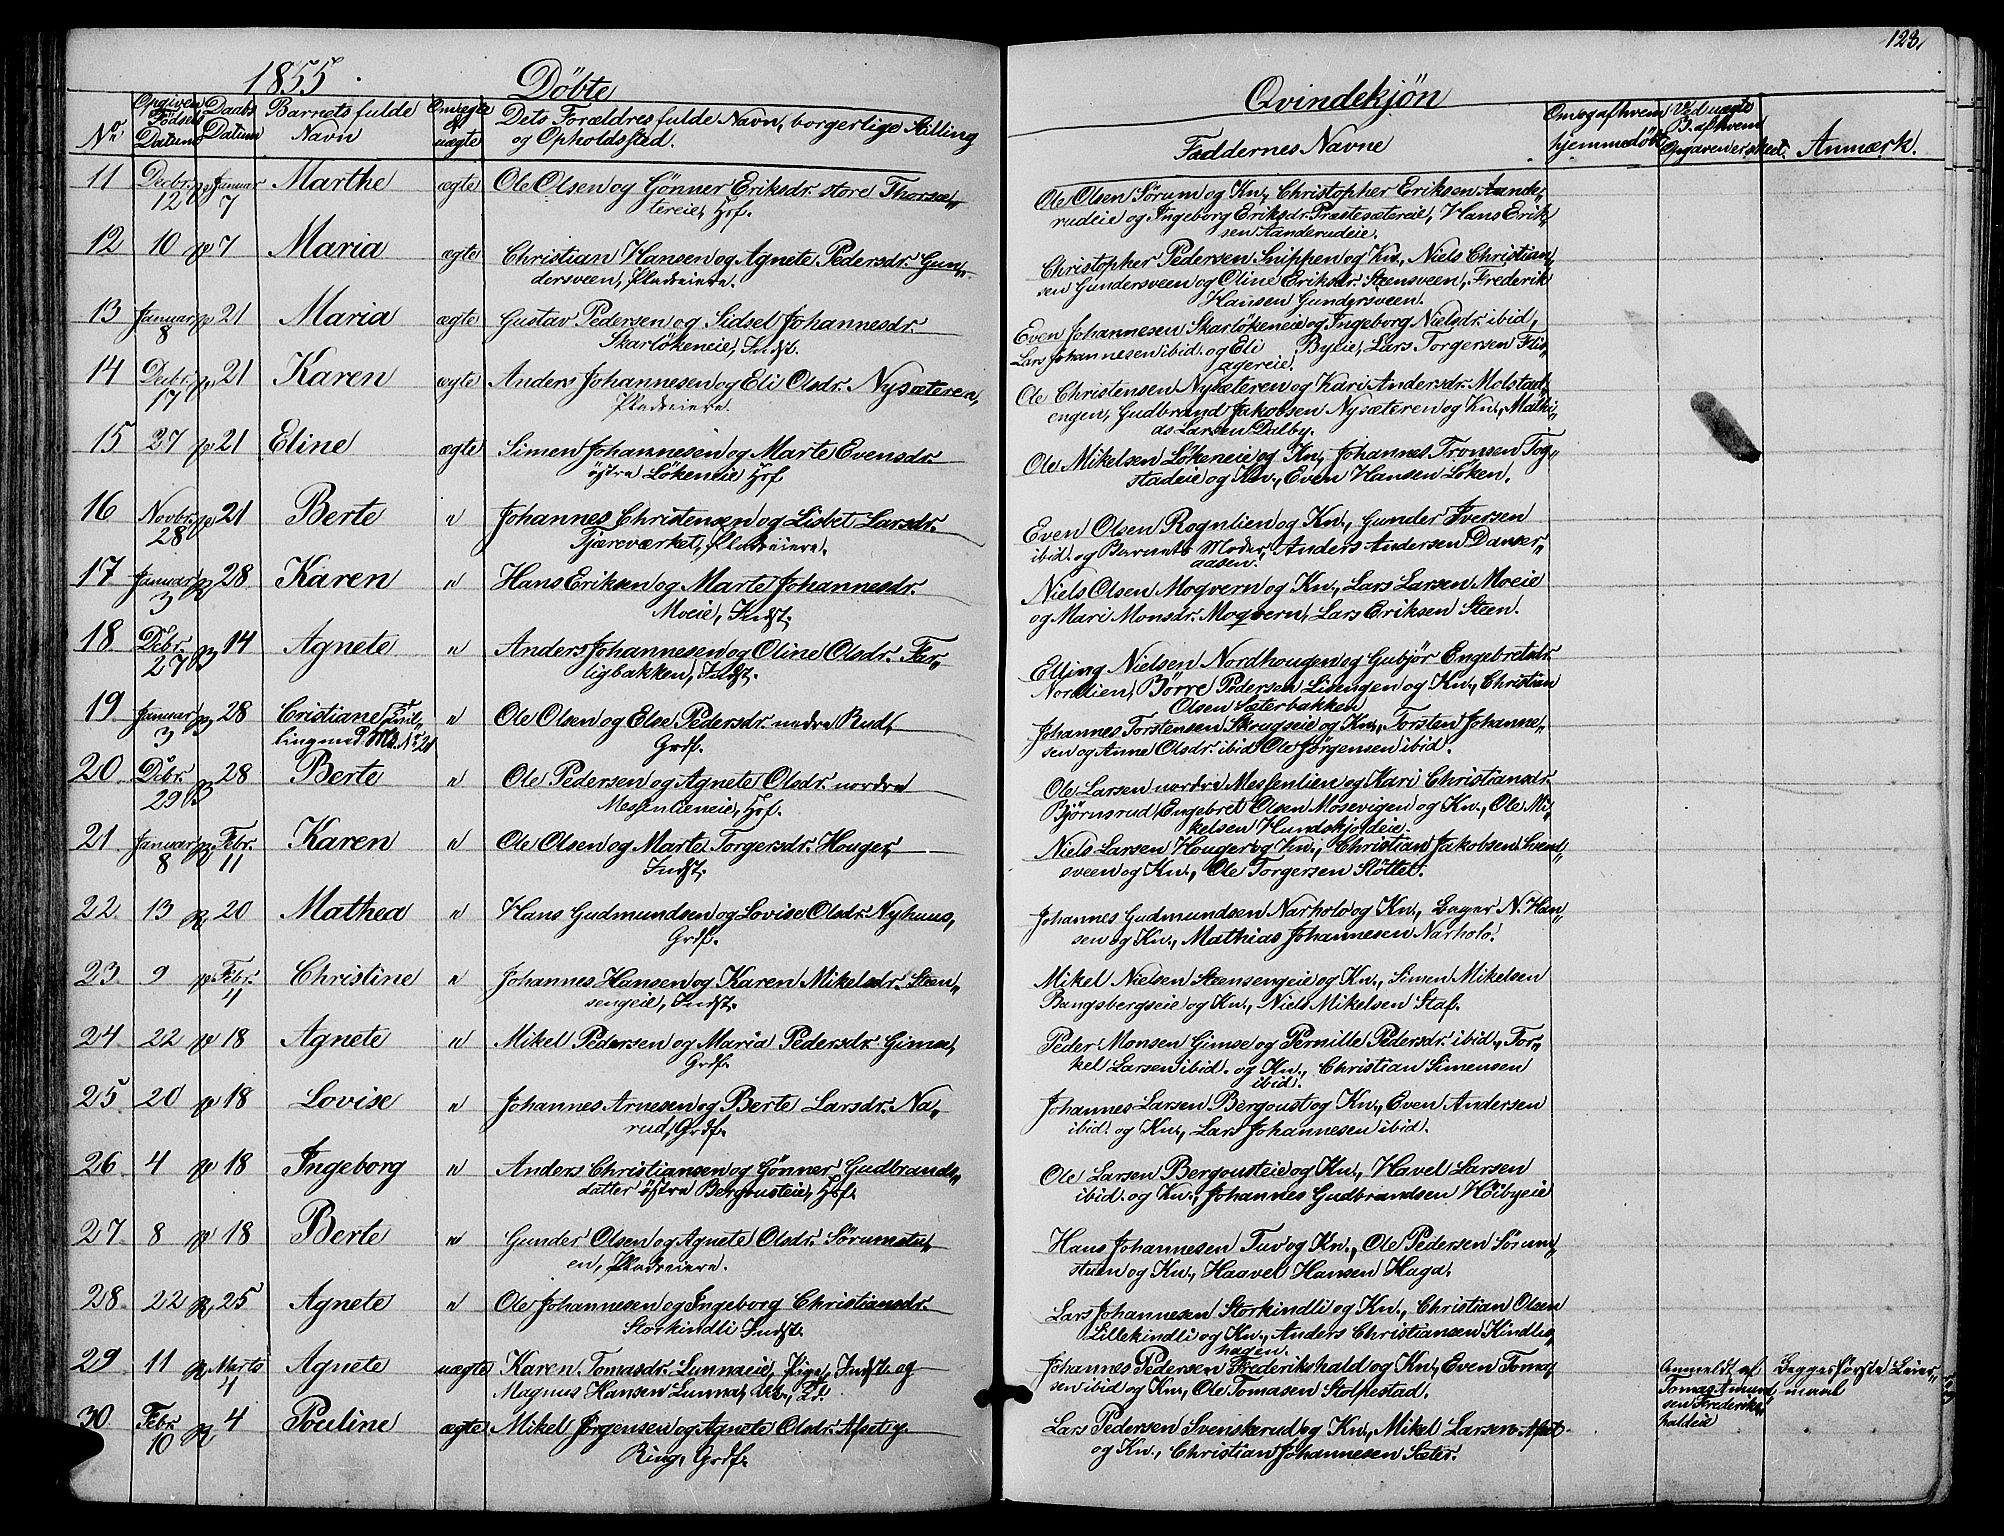 123.
1855. Döbte Qvindekjön
Nr. Opgiven Födsels Datum Daabs Datum Barnets fulde Navn Om ægte el. uægte Dets Forældres fulde Navn, borgerlige Stilling og Opholdssted. Faddernes Navne Om og af hvem hjemmedöbt Ved uægte B. af hvem Opgaven er skeet. Anmærk.
11 Decbr. 12 Januar 7 Marthe ægte Ole Olsen og Gönner Eriksdr. store Thorsæ„
tereie, Hsf.
Ole Olsen Sörum og Kn., Christopher Eriksen Aande„
rudeie og Ingeborg Eriksdr. Præstesætereie, Hans Erik„
sen Aanderudeie.
12 10 7 Maria ægte Christian Hansen og Agnete Pedersdr. Gun„
dersveen, Pladseiere.
Christopher Pedersen Snippen og Kn., Niels Christian„
sen Gundersveen og Oline Eriksdr. Steensveen, Frederik
Hansen Gundersveen.
13 Januar 8 21 Maria ægte Gustav Pedersen og Sidsel Johannesdr.
Skarlökeneie, Indst.
Even Johannesen Skarlökeneie og Ingeborg Nielsdr. ibid,
Lars Johannesen ibid. og Eli Byeie, Lars Torgersen Flis„
agereie.
14 Decbr. 17 21 Karen ægte Anders Johannesen og Eli Olsdr. Nysæteren,
Pladseiere.
Ole Christensen Nysæteren og Kari Andersdr. Molstad„
engen, Gudbrand Jakobsen Nysæteren og Kn., Mathi„
as Larsen Dalby.
15 27 21 Eline ægte Simen Johannesen og Marte Evensdr.
östre Lökeneie Hsf
Ole Mikelsen Lökeneie og Kn., Johannes Tronsen Tog„
stadeie og Kn., Even Hansen Löken.
16 Novbr. 28 21 Berte " Johannes Christensen og Lisbet Larsdr.
Tjæreværket, Pladseiere.
Even Olsen Rognlien og Kn., Gunder Iversen
ibid. og Barnets Moder, Anders Andersen Danser„
aasen.
17 Januar 3 28 Karen " Hans Eriksen og Marte Johannesdr.
Moeie, Indst.
Niels Olsen Mogvern og Kn., Lars Larsen Moeie
og Mari Monsdr. Mogvern, Lars Eriksen Steen.
18 Debr. 27 14 Agnete " Anders Johannesen og Oline Olsdr. Far„
ligbakken, Indst.
Elling Nielsen Nordhougen og Gubjör Engebretsdr.
Nordlien, Börre Pedersen Lisengen og Kn., Christian
Olsen Sæterbakken
19 Januar 3 28 Cristiane Tvil„
ling med Mk. Nr. 21 " Ole Olsen og Else Pedersdr. nedre Rud,
Grdf.
Johannes Torstensen Skrugseie og Kn., Torsten Johanne„
sen og Anne Olsdr. ibid Ole Jörgensen ibid.
20 Debr. 29 28 Berte " Ole Pedersen og Agnete Olsdr. nordre
Messenlieneie, Hsf.
Ole Larsen nordre Messenlien og Kari Christiansdr.
Björnsrud, Engebret Olsen Mosevigen og Kn., Ole Mi„
kelsen Hundskjoldeie.
21 Januar 8 Febr. 11 Karen " Ole Olsen og Marte Torgersdr. Houger,
Indst.
Niels Larsen Houger og Kn., Christian Jakobsen Lund„
sveen og Kn., Ole Torgersen Slöttet.
22. 13 20 Mathea " Hans Gudmundsen og Lovise Olsdr. Nyhuus,
Grdf.
Johannes Gudmundsen Narholo og Kn., Bager N. Han„
sen og Kn., Mathias Johannesen Narholo.
23. 9 Febr. 11 Christine " Johannes Hansen og Karen Mikelsdr. Steen„
sengeie, Indst.
Mikel Nielsen Steensengeie og Kn., Simen Mikelsen
Bangsbergseie og Kn., Niels Mikelsen Staf.
24 22 18 Agnete " Mikel Pedersen og Maria Pedersdr. Gimse,
Grdf.
Peder Monsen Gimse og Pernille Pedersdr. ibid., Tor„
kel Larsen ibid. og Kn., Christian Simensen
ibid.
25 20 18 Lovise " Johannes Arnesen og Berte Larsdr. Na„
rud, Grdf.
Johannes Larsen Bergoust og Kn., Even Andersen
ibid. og Kn., Lars Johannesen ibid.
26 4 18 Ingeborg " Anders Christiansen og Gönner Gudbrands„
datter östre Bergousteie, Hsf.
Ole Larsen Bergousteie og Kn., Havel Larsen
ibid. og Kn., Johannes Gudbrandsen Höibyeie
27 8 18 Berte " Gunder Olsen og Agnete Olsdr. Sörumstu„
en, Pladseiere.
Hans Johannesen Tuv og Kn., Ole Pedersen Sörum„
stuen og Kn., Haavel Hansen Haga.
28. 22 25 Agnete " Ole Johannesen og Ingeborg Christiansdr.
Storkindli Indst.
Lars Johannesen Storkindli og Kn., Christian Olsen
Lillekindli og Kn., Anders Christiansen Kindlis„
hagen.
29 11 Marts 4 Agnete uægte Karen Tomasdr. Lunnaeie, Pige, Indst. og
Magnus Hansen Lunna,
Johannes Pedersen Frederikshald og Kn., Even Toma„
sen ibid og Kn., Ole Tomasen Stolpestad.
Anmeldt af
Tomas Amund„
sen Frederiks„
haldeie
Begges förste Leier„
maal
30 Febr. 10 4 Pouline ægte Mikel Jörgensen og Agnete Olsdr. Afset y.
Ring, Grdf.
Lars Pedersen Svenskerud og Kn., Mikel Larsen Afset
og Kn., Christian Johannesen Sæter.